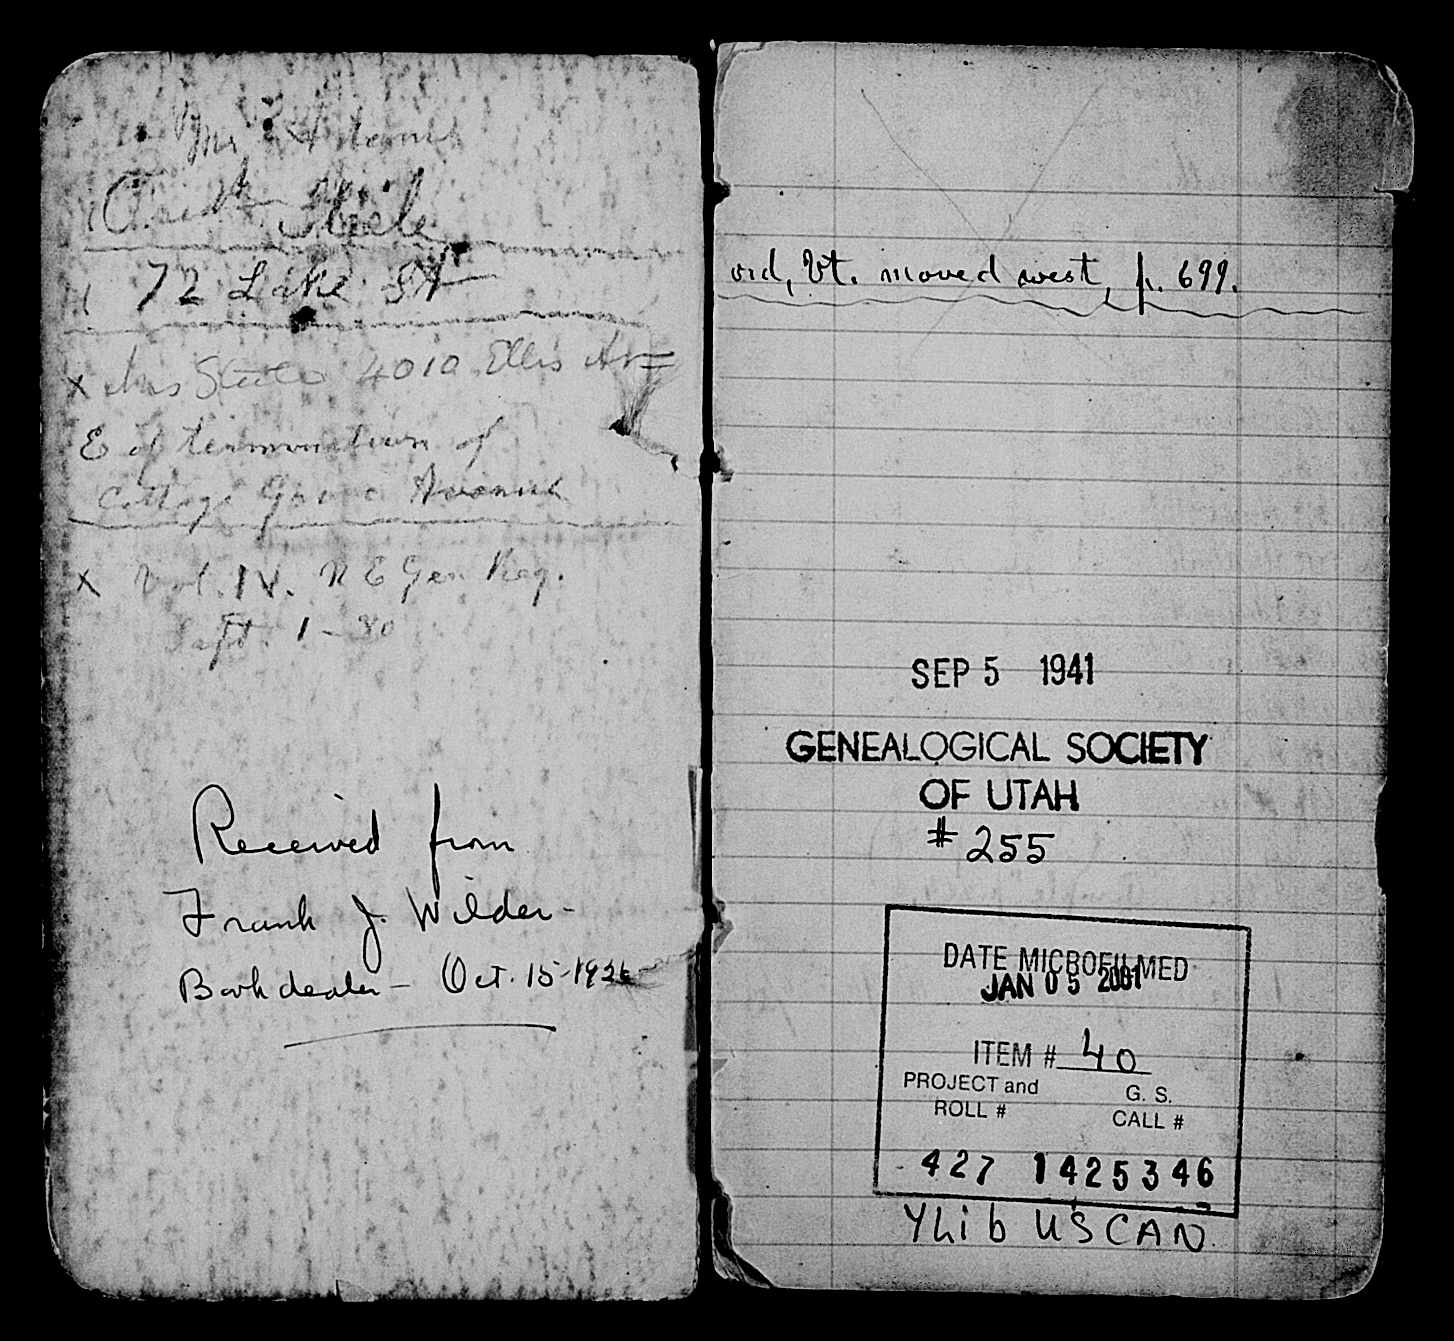 Mr Adams
Steele
72 Lake St
x Mrs Steele 4010 Ellis Av
E of termination of
Cottage Grove Avenue
x Vol. IV. N E Gen Reg.
Sept. 1-80
Received from
Frank J. Wilder-
Bookdealer - Oct. 15-1926
ord, Vt. moved west, p. 699.
SEP 5 1941
GENEALOGICAL SOCIETY
OF UTAH
# 255
DATE MICROFILMED
JAN 05 2001
ITEM # 40
PROJECT and G. S.
ROLL # CALL #
427 1425346
YLib USCAN